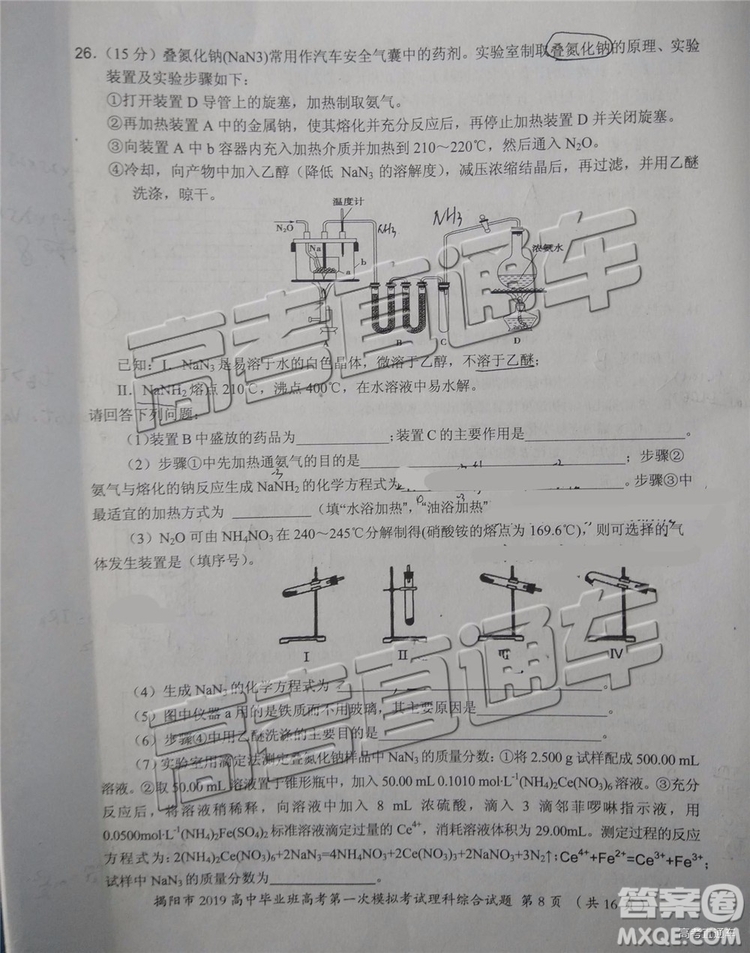 26.（15 分）叠氮化钠(NaN3)常用作汽车安全气囊中的药剂。实验室制取叠氮化钠的原理、实验
装置及实验步骤如下：
①打开装置 D 导管上的旋塞，加热制取氨气。
②再加热装置 A 中的金属钠，使其熔化并充分反应后，再停止加热装置 D 并关闭旋塞。
③向装置 A 中 b 容器内充入加热介质并加热到 210～220℃，然后通入 N₂O。
④冷却，向产物中加入乙醇（降低 NaN₃ 的溶解度），减压浓缩结晶后，再过滤，并用乙醚
洗涤，晾干。
温度计
N₂O
NH₃
NH₃
Na
a
b
浓氨水
A
B
C
D
已知：I. NaN₃ 是易溶于水的白色晶体，微溶于乙醇，不溶于乙醚；
II. NaNH₂ 熔点 210℃，沸点 400℃，在水溶液中易水解。
请回答下列问题：
（1)装置 B 中盛放的药品为；装置 C 的主要作用是。
（2）步骤①中先加热通氨气的目的是；步骤②
氨气与熔化的钠反应生成 NaNH₂ 的化学方程式为。步骤③中
最适宜的加热方式为（填“水浴加热”，“油浴加热”
（3）N₂O 可由 NH₄NO₃ 在 240～245℃分解制得(硝酸铵的熔点为 169.6℃)，则可选择的气
体发生装置是（填序号）。
I
II
IV
（4）生成 NaN₃ 的化学方程式为。
（5）图中仪器 a 用的是铁质而不用玻璃，其主要原因是。
（6）步骤④中用乙醚洗涤的主要目的是。
（7）实验室用滴定法测定叠氮化钠样品中 NaN₃ 的质量分数：①将 2.500 g 试样配成 500.00 mL
溶液。②取 50.00 mL 溶液置于锥形瓶中，加入 50.00 mL 0.1010 mol·L⁻¹(NH₄)₂Ce(NO₃)₆ 溶液。③充分
反应后，将溶液稍稀释，向溶液中加入 8 mL 浓硫酸，滴入 3 滴邻菲啰啉指示液，用
0.0500mol·L⁻¹(NH₄)₂Fe(SO₄)₂ 标准溶液滴定过量的 Ce⁴⁺，消耗溶液体积为 29.00mL。测定过程的反应
方程式为：2(NH₄)₂Ce(NO₃)₆+2NaN₃=4NH₄NO₃+2Ce(NO₃)₃+2NaNO₃+3N₂↑；Ce⁴⁺+Fe²⁺=Ce³⁺+Fe³⁺；
试样中 NaN₃ 的质量分数为。
揭阳市 2019 高中毕业班高考第一次模拟考试理科综合试题 第 8 页 （共 16
高考直通车
高考直通车
答案卷
MXQE.COM
高考直通车